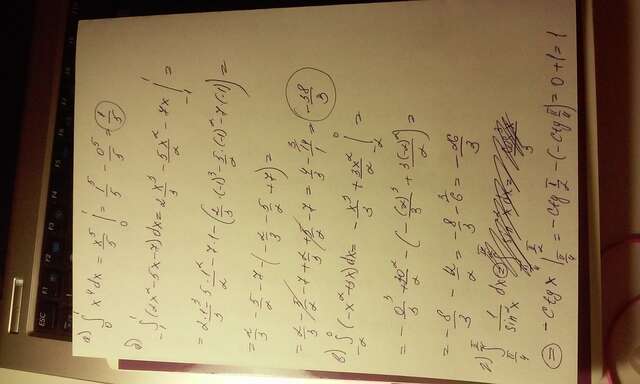 ESC F1 F2 F3 F4
а) ∫₀¹ x⁴dx = x⁵/5 |₀¹ = 1⁵/5 − 0⁵/5 = 1/5
б) ∫₋₁¹ (2x² − 5x − 7)dx = 2x³/3 − 5x²/2 − 7x |₋₁¹ =
= 2·1³/3 − 5·1²/2 − 7·1 − (2/3·(−1)³ − 5/2·(−1)² − 7(−1)) =
= 2/3 − 5/2 − 7 − (−2/3 − 5/2 + 7) =
= 2/3 − 5/2 − 7 + 2/3 + 5/2 − 7 = 4/3 − 14/1 = −38/3
в) ∫₋₂⁰ (−x² + 3x)dx = −x³/3 + 3x²/2 |₋₂⁰ =
= −0³/3 + 3·0²/2 − (−(−2)³/3 + 3(−2)²/2) =
= −8/3 −
= −8/3 − 6 = −26/3
г) ∫ 1/sin²x dx =
= −ctgx | = −ctg π/2 − (−ctg π/4) = 0 + 1 = 1